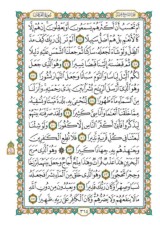 أم تحسب أن أكثرهم يسمعون أو يعقلون إن هم إلا
كالأنعام بل هم أضل سبيلا ألم تر إلى ربك كيف مد
الظل ولو شاء لجعله ساكنا ثم جعلنا الشمس عليه دليلا
ثم قبضناه إلينا قبضا يسيرا وهو الذي جعل
لكم الليل لباسا والنوم سباتا وجعل النهار نشورا
وهو الذي أرسل الرياح بشرا بين يدي رحمته وأنزلنا
من السماء ماء طهورا لنحيي به بلدة ميتا ونسقيه
مما خلقنا أنعاما وأناسي كثيرا ولقد صرفناه
بينهم ليذكروا فأبى أكثر الناس إلا كفورا ولو شئنا
لبعثنا في كل قرية نذيرا فلا تطع الكافرين
وجاهدهم به جهادا كبيرا وهو الذي مرج
البحرين هذا عذب فرات وهذا ملح أجاج وجعل بينهما برزخا
وحجرا محجورا وهو الذي خلق من الماء بشرا فجعله
نسبا وصهرا وكان ربك قديرا ويعبدون من دون الله
ما لا ينفعهم ولا يضرهم وكان الكافر على ربه ظهيرا
٣٦٤